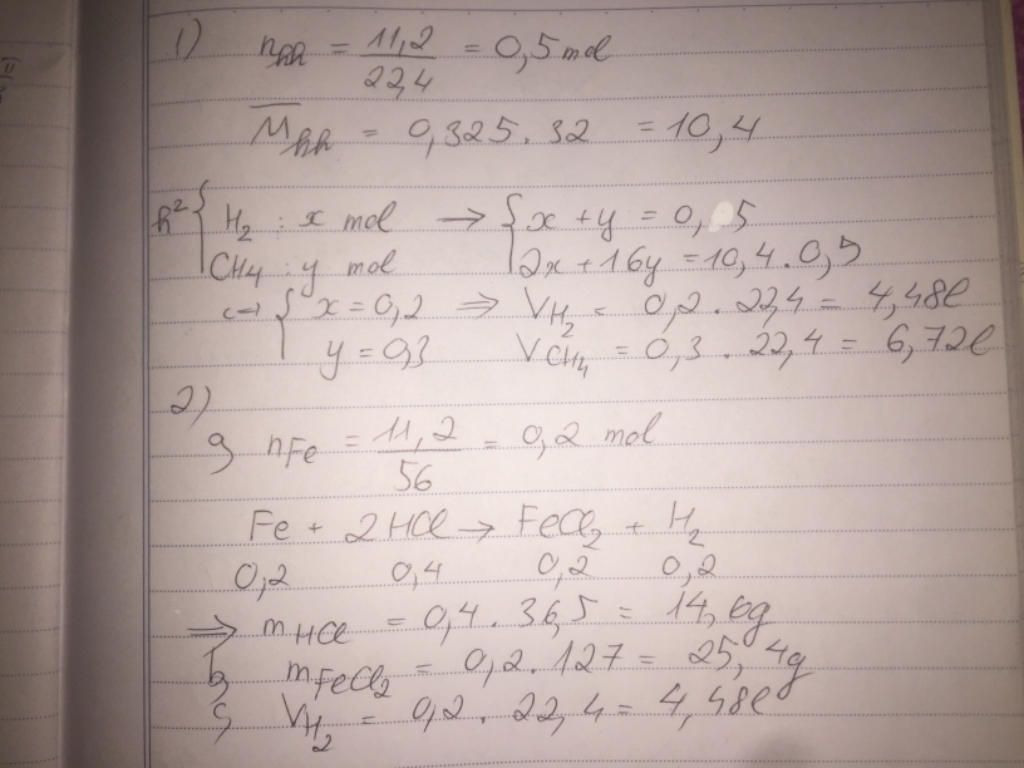 1) nhh = 11,2 / 22,4 = 0,5 mol
M̅hh = 0,325 . 32 = 10,4
h² { H₂ : x mol → { x + y = 0,5
CH₄ : y mol 2x + 16y = 10,4 . 0,5
↔ { x = 0,2 ⇒ VH₂ = 0,2 . 22,4 = 4,48l
y = 0,3 VCH₄ = 0,3 . 22,4 = 6,72l
2)
a, nFe = 11,2 / 56 = 0,2 mol
Fe + 2HCl → FeCl₂ + H₂
0,2 0,4 0,2 0,2
⇒ mHCl = 0,4 . 36,5 = 14,6g
b, mFeCl₂ = 0,2 . 127 = 25,4g
c, VH₂ = 0,2 . 22,4 = 4,48l